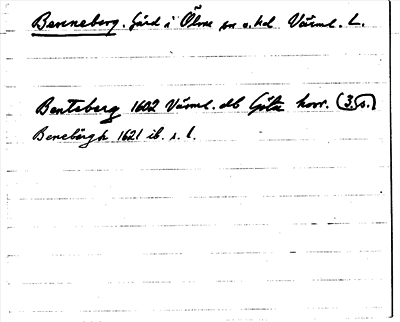 Benneberg. Gård i Ölme sn o. hd Värml. L.
Bentsberg 1602 Värml. Hb Göta korr. (3 s.)
Benebärgh 1621 ib. s. l.